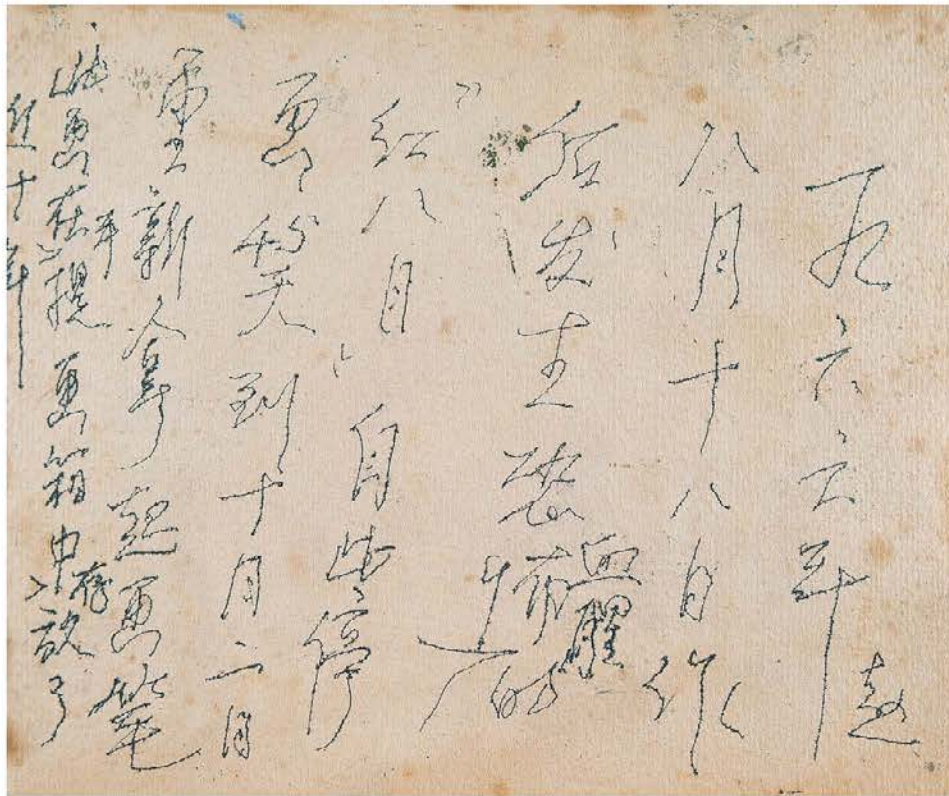 一九六六年
八月十八日作
后发生恐怖血腥的
“红八月”自此停
画到十月二日
重新拿起画笔
此画在提画箱中存放了
近十年